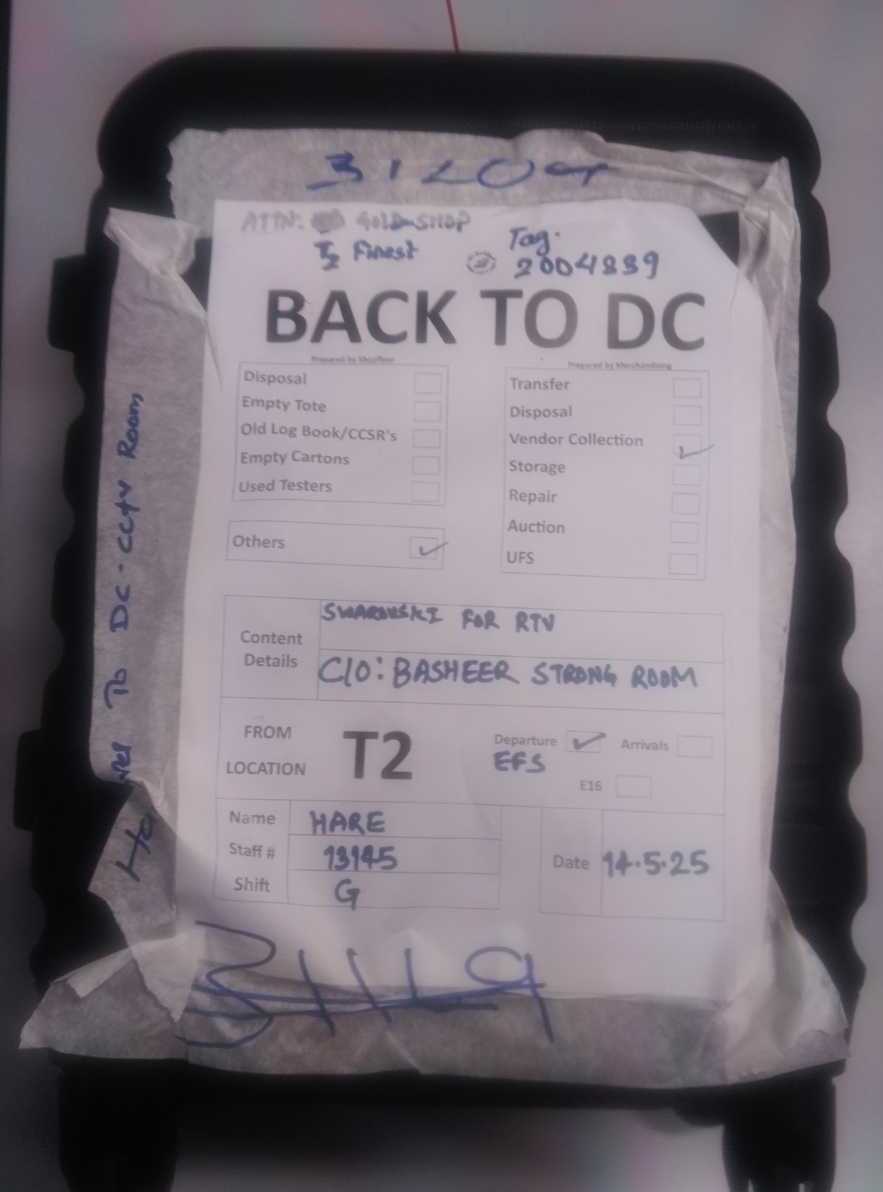 ATTN: GOLD SHOP
T2 Finest
Tag.
2004839
BACK TO DC
Prepared by Shopfloor
Disposal
Empty Tote
Old Log Book/CCSR's
Empty Cartons
Used Testers
Others
Prepared by Merchandising
Transfer
Disposal
Vendor Collection
Storage
Repair
Auction
UFS
Content Details
SWAROVSKI FOR RTV
C/O: BASHEER STRONG ROOM
FROM LOCATION
T2
Departure
Arrivals
EFS
E16
Name HARE
Staff # 13145
Shift G
Date 14.5.25
To DC - CCTV Room